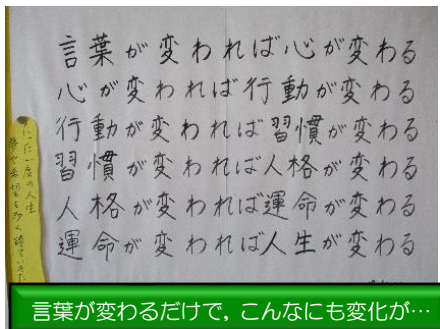 言葉が変われば心が変わる
心が変われば行動が変わる
行動が変われば習慣が変わる
習慣が変われば人格が変わる
人格が変われば運命が変わる
運命が変われば人生が変わる
たった一度の人生
言葉が変わるだけで，こんなにも変化が…